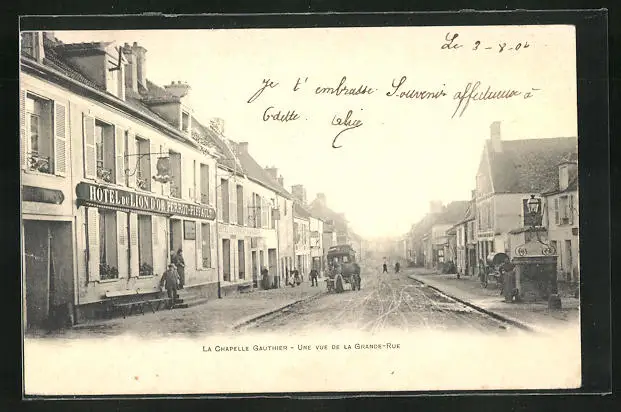 Le 3-8-04
je t'embrasse Souvenir affectueux à
Odette. Alice
HOTEL DU LION D'OR PERROT-PIFFAULT
LA CHAPELLE GAUTHIER - UNE VUE DE LA GRANDE-RUE